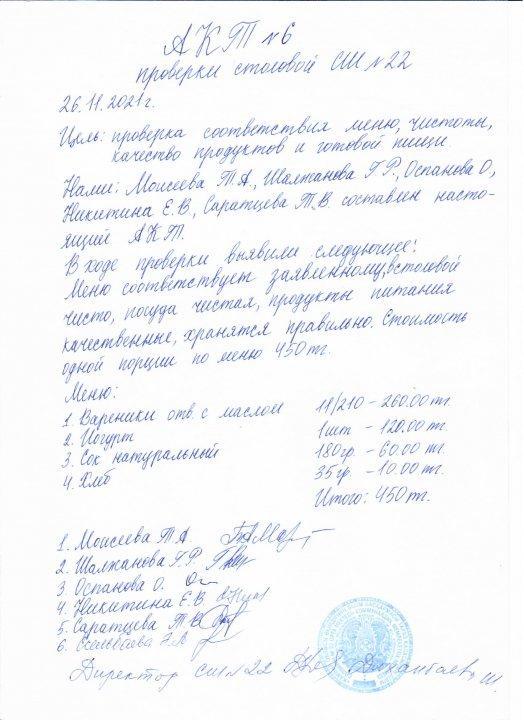 АКТ №6
проверки столовой СШ №22
26.11.2021г.
Цель: проверка соответствия меню, чистоты,
качество продуктов и готовой пищи.
Нами: Моисеева Т.А., Шалжанова Г.Р., Оспанова О,
Никитина Е.В, Саратцева Т.В. составлен насто-
ящий АКТ.
В ходе проверки выявили следующее:
Меню соответствует заявленному, в столовой
чисто, посуда чистая, продукты питания
качественные, хранятся правильно. Стоимость
одной порции по меню 450тг.
Меню:
1. Вареники отв. с маслом 11/210 - 260.00 тг.
2. Йогурт 1шт - 120.00 тг.
3. Сок натуральный 180гр. - 60.00 тг.
4. Хлеб 35гр. - 10.00 тг.
Итого: 450тг.
1. Моисеева Т.А.
2. Шалжанова Г.Р.
3. Оспанова О.
4. Никитина Е.В.
5. Саратцева Т.В.
6.
Директор СШ №22